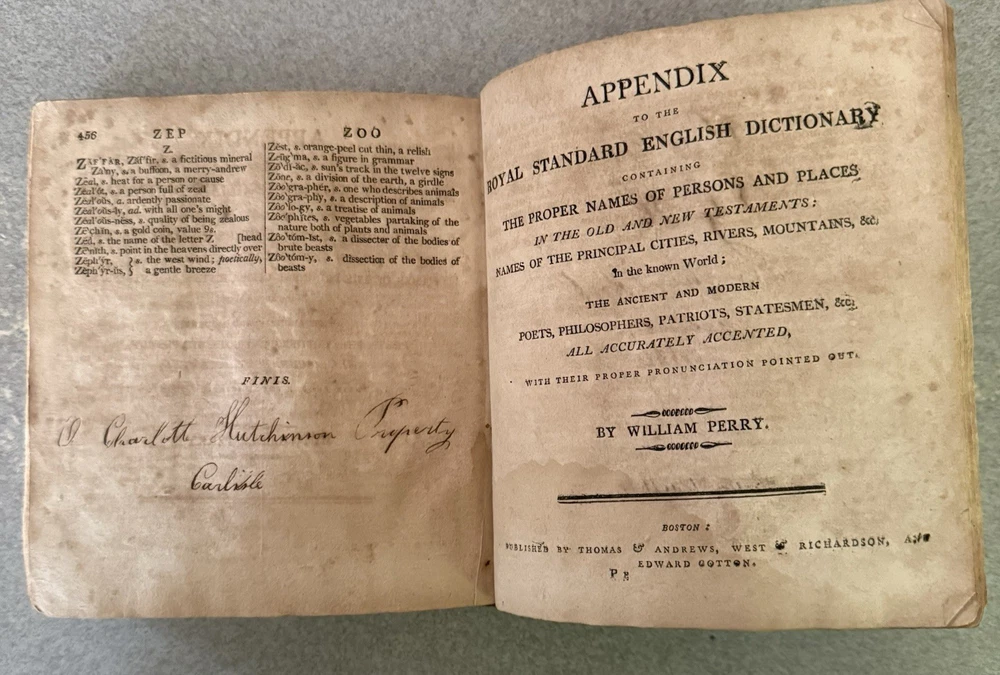 456 ZEP ZOO
Z.
ZAF'FAR, Zäf'fir, s. a fictitious mineral
Zā'ny, s. a buffoon, a merry-andrew
Zēal, s. heat for a person or cause
Zĕal'ŏt, s. a person full of zeal
Zĕal'oŭs, a. ardently passionate
Zĕal'oŭs-ly, ad. with all one's might
Zĕal'oŭs-ness, s. quality of being zealous
Ze'chin, s. a gold coin, value 9s.
Zĕd, s. the name of the letter Z [head
Zē'nith, s. point in the heavens directly over
Zĕph'yr, } s. the west wind; poetically,
Zĕph'ўr-ŭs, } a gentle breeze
Zĕst, s. orange-peel cut thin, a relish
Zeūg'ma, s. a figure in grammar
Zō'di-ăc, s. sun's track in the twelve signs
Zōne, s. a division of the earth, a girdle
Zōo'gra-phĕr, s. one who describes animals
Zōo'gra-phy, s. a description of animals
Zōo'lo-gy, s. a treatise of animals
Zōo'phītes, s. vegetables partaking of the
nature both of plants and animals
Zōo'tŏm-ĭst, s. a dissecter of the bodies of
brute beasts
Zōo'tŏm-y, s. dissection of the bodies of
beasts
FINIS.
Charlott Hutchinson Property
Carlisle
APPENDIX
TO THE
ROYAL STANDARD ENGLISH DICTIONARY
CONTAINING
THE PROPER NAMES OF PERSONS AND PLACES
IN THE OLD AND NEW TESTAMENTS:
NAMES OF THE PRINCIPAL CITIES, RIVERS, MOUNTAINS, &c.
In the known World;
THE ANCIENT AND MODERN
POETS, PHILOSOPHERS, PATRIOTS, STATESMEN, &c.
ALL ACCURATELY ACCENTED,
WITH THEIR PROPER PRONUNCIATION POINTED OUT.
BY WILLIAM PERRY.
BOSTON:
PUBLISHED BY THOMAS & ANDREWS, WEST & RICHARDSON, AND
EDWARD COTTON.
P g